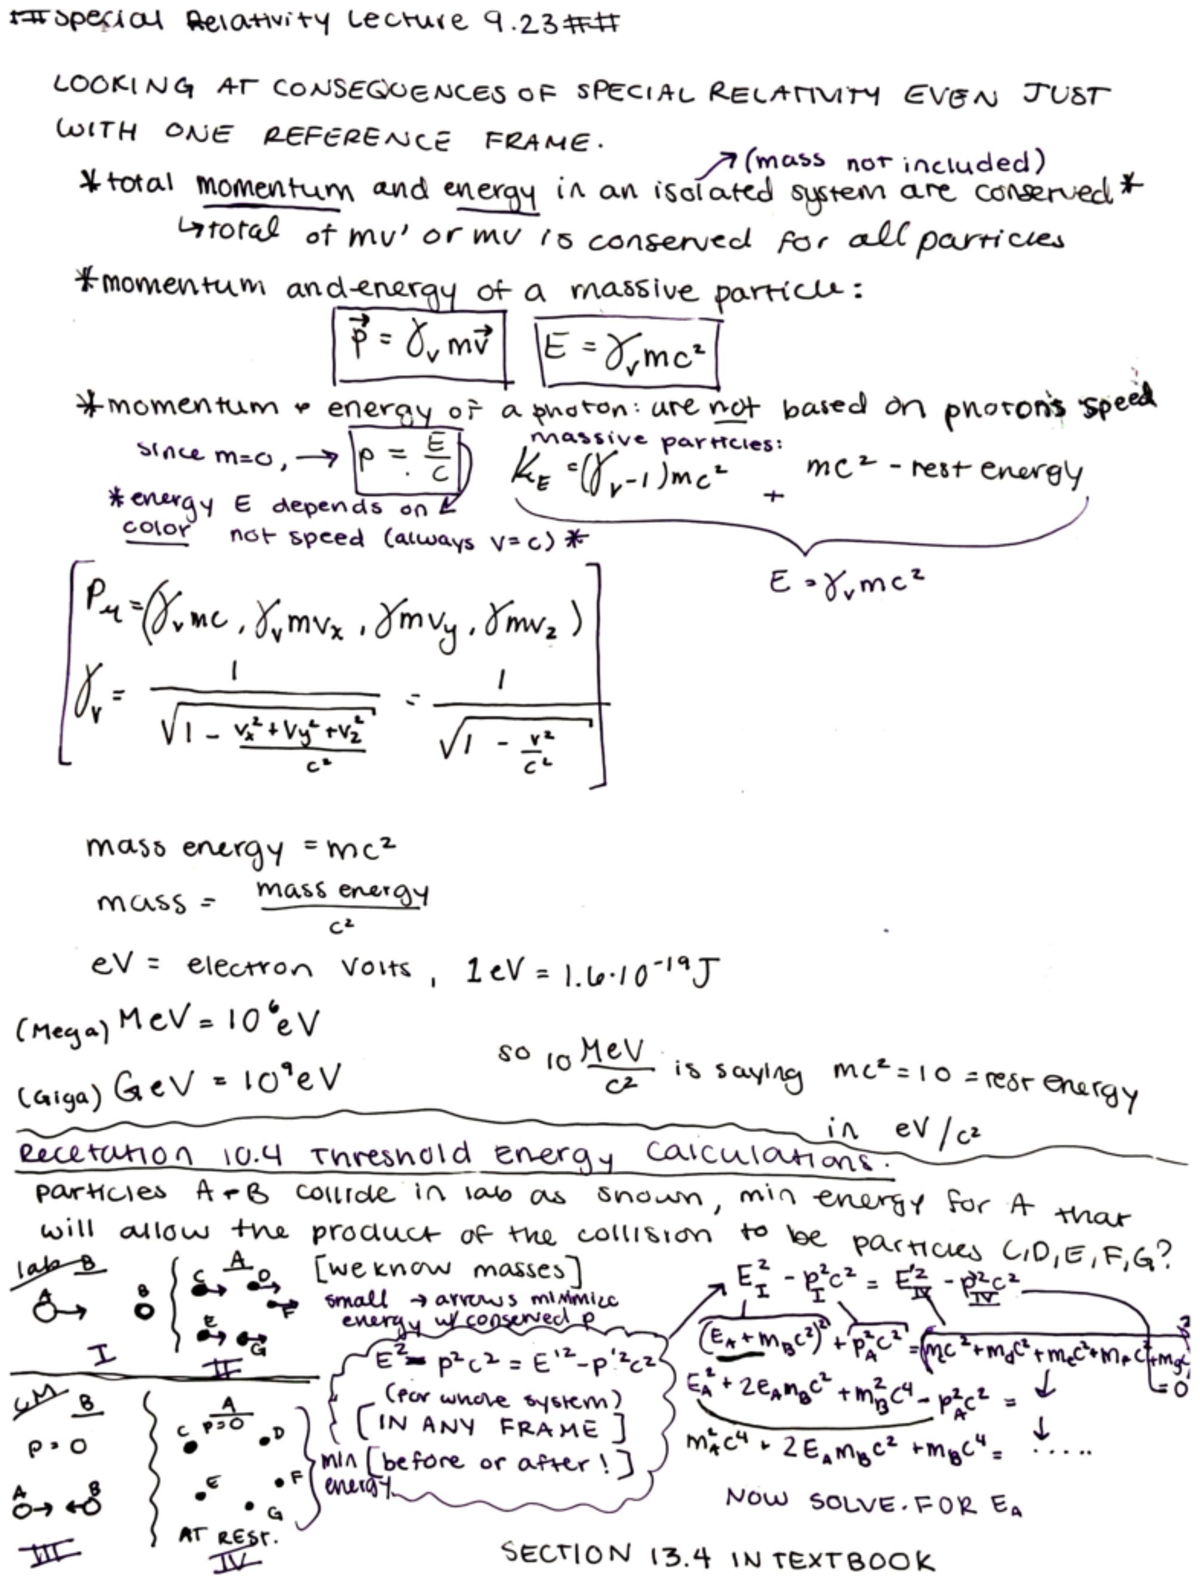 ##Special Relativity Lecture 9.23##
LOOKING AT CONSEQUENCES OF SPECIAL RELATIVITY EVEN JUST
WITH ONE REFERENCE FRAME.
(mass not included)
*total momentum and energy in an isolated system are conserved*
↳total of mv' or mv is conserved for all particles
*momentum and energy of a massive particle:
p⃗ = γᵥmv⃗   E = γᵥmc²
*momentum + energy of a photon: are not based on photon's speed
since m=0, → p = E/c   massive particles:
K_E = (γᵥ-1)mc² + mc² - rest energy
*energy E depends on
color not speed (always v=c)*
E = γᵥmc²
Pμ = (γᵥmc, γᵥmvₓ, γmv_y, γmv_z)
γᵥ = 1/√(1 - (vₓ²+v_y²+v_z²)/c²) = 1/√(1 - v²/c²)
mass energy = mc²
mass = mass energy/c²
eV = electron volts, 1eV = 1.6·10⁻¹⁹J
(Mega) MeV = 10⁶eV
(Giga) GeV = 10⁹eV
so 10 MeV/c² is saying mc² = 10 = rest energy
in eV/c²
Recetation 10.4 Threshold Energy Calculations.
particles A+B collide in lab as shown, min energy for A that
will allow the product of the collision to be particles C,D,E,F,G?
lab B
A → B
I
A
C D
F
E
G
II
[we know masses]
small → arrows minimize
energy w/ conserved p
E² - p²c² = E'² - p'²c²
(for whole system)
[IN ANY FRAME]
[before or after!]
CM B
p=0
A → ← B
III
A
p=0
C D
E F
G
AT REST.
IV
min
energy
E_I² - p_I²c² = E'_IV² - p'_IV²c²
(E_A + m_Bc²)² + p_A²c² = (m_cc² + m_dc² + m_ec² + m_Fc² + m_gc²)²
= 0
E_A² + 2E_Am_Bc² + m_B²c⁴ - p_A²c² = ↓
m_A²c⁴ + 2E_Am_Bc² + m_Bc⁴ = .....
NOW SOLVE FOR E_A
SECTION 13.4 IN TEXTBOOK